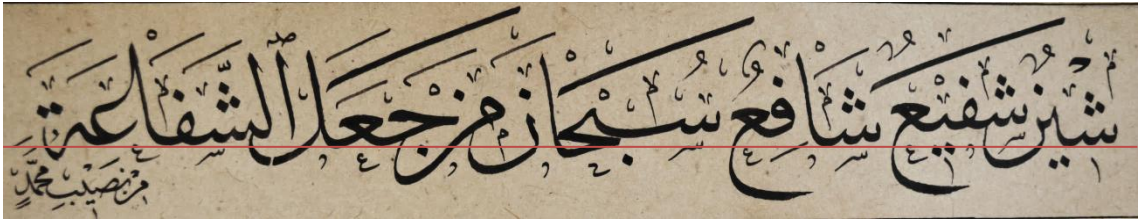 شين شفيع شافع سبحان من جعل الشفاعة
من نصيب محمد